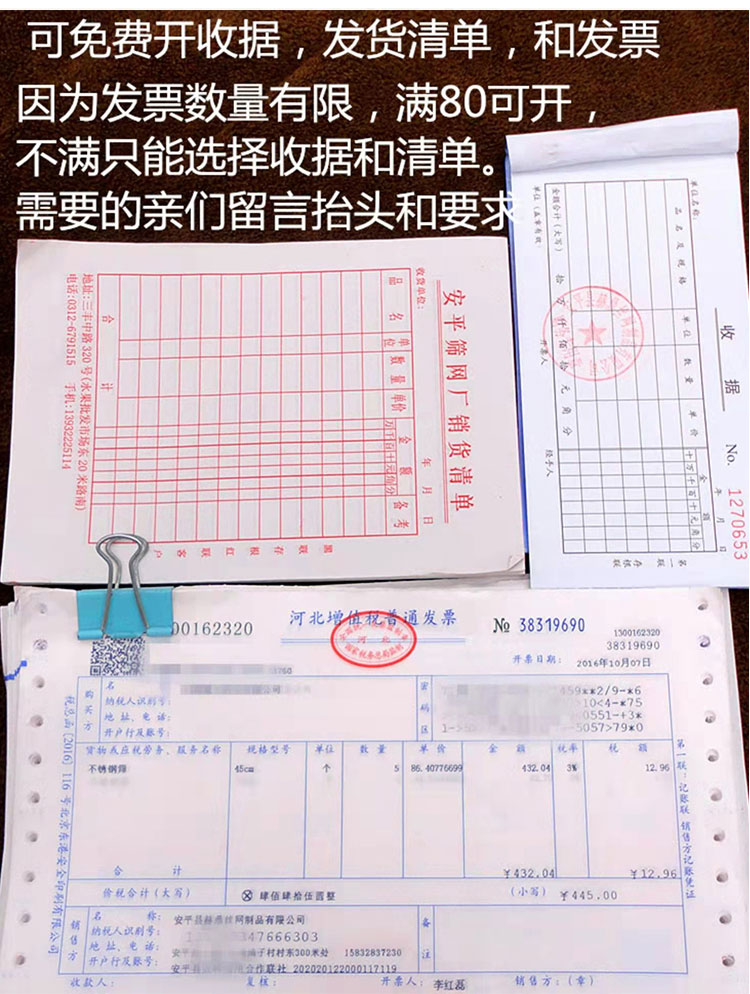 可免费开收据，发货清单，和发票
因为发票数量有限，满80可开，
不满只能选择收据和清单。
需要的亲们留言抬头和要求
收据
No. 1270653
年 月 日
单位名称：
品名及规格 单位 数量 单价 金额
十万千百十元角分
金额合计（大写） 拾 万 仟 佰 拾 元 角 分
单位（盖章有效）
开票人
经手人
安平筛网厂销货清单
收货单位：
年 月 日
品名 单位 数量 单价 金额 备考
万千百十元角分
合计
地址：三丰中路320号(水果批发市场东20米路南)
电话：0312-6791515 手机：13932225114
河北增值税普通发票
00162320
№ 38319690
1300162320
38319690
开票日期： 2016年10月07日
购买方
名 称：
纳税人识别号：
地 址、电 话：
开户行及账号：
密码区
货物或应税劳务、服务名称 规格型号 单位 数量 单价 金额 税率 税额
不锈钢筛 45cm 个 5 86.40776699 432.04 3% 12.96
合 计 ￥432.04 ￥12.96
价税合计（大写） 肆佰肆拾伍圆整 （小写） ￥445.00
销售方
名 称：
丝网制品有限公司
纳税人识别号：
347666303
地 址、电 话：
子村村东300米处 15832837230
开户行及账号：
合作联社 202020122000117119
备注
收款人： 复核： 开票人： 李红磊 销售方：（章）
税总函〔2016〕116号北京东港安全印刷有限公司
第一联：记账联 销售方记账凭证